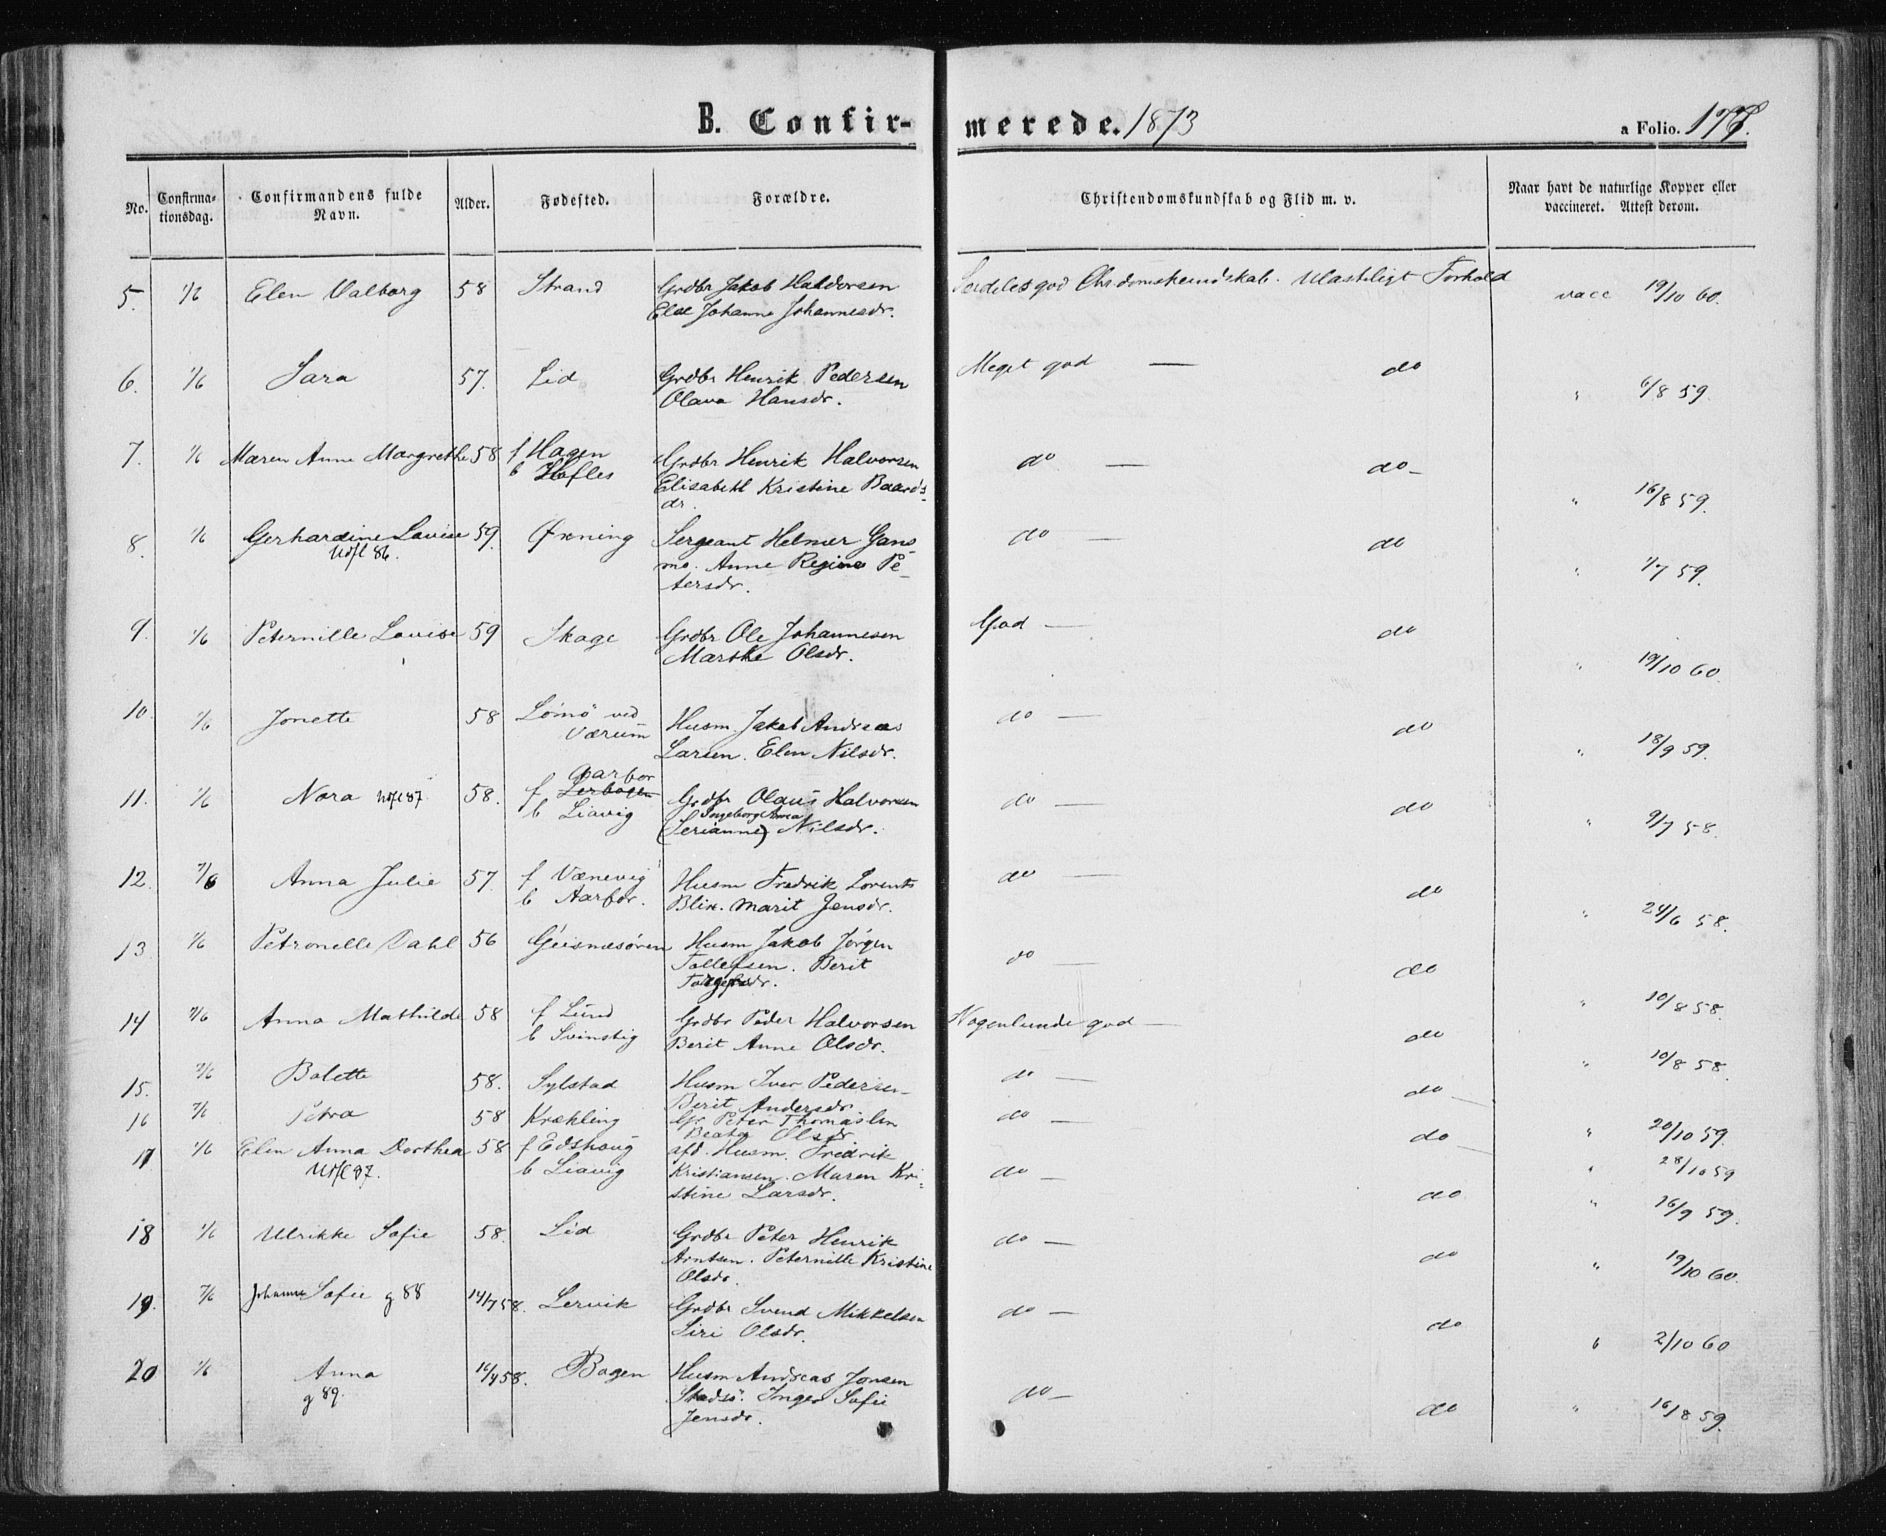 B. Confir-
merede. 1873
a Folio. 177.
No.
Confirma-
tionsdag.
Confirmandens fulde
Navn.
Alder.
Fødested.
Forældre.
Christendomskundskab og Flid m. v.
Naar havt de naturlige Kopper eller
vaccineret. Attest derom.
5. 1/6 Elen Valborg 58 Strand Grdbr Jakob Haldorsen
Else Johanna Johannesdr.
Særdeles god Chrdomskundskab. Ulasteligt Forhold vacc 19/10 60.
6. 1/6 Sara 57. Lid Grdbr Henrik Pedersen
Olava Hansdr.
Meget god — do " 6/8 59.
7. 1/6 Maren Anne Margrethe 58 f Hagen
b Høfles
Grdbr Henrik Halvorsen
Elisabeth Kristine Baards-
dr.
do — do- " 16/8 59.
8. 1/6 Gerhardine Lovise 59. Øxning Sergeant Helmer Gans-
Udfl 86.
mo. Anne Regine Pe-
tersdr.
do — do " 1/7 59.
9. 1/6 Peternille Lovise 59 Skage Grdbr Ole Johannesen
Marthe Olsdr.
God — do " 19/10 60.
10. 1/6 Jonette 58 Lømø ved
Værum
Husm Jakob Andreas
Larsen. Elen Nilsdr.
do — do " 18/9 59.
11. 1/6 Nora Udfl 87. 58. Aarfor
f Lerbogen
b Liavig
Grdbr Olaus Halvorsen
Ingeborg Anna
(Serianne) Nilsdr.
do — do " 9/7 58.
12. 1/6 Anna Julie 57. f Vænevig
b Aarfor.
Husm Fredrik Lorents
Blix. Marit Jensdr.
do — do " 24/6 58.
13. 1/6 Petronelle Dahl 56 Geisnæsøren Husm Jakob Jørgen
Tollefsen. Berit
do — do " 10/8 58.
14 1/6 Anna Mathilde 58 f Lund
b Svinstig
Grdbr Peder Halvorsen
Berit Anne Olsdr.
Nogenlunde god — do " 10/8 58.
15. 1/6 Bolette 58. Sylstad Husm Iver Pedersen
Berit Andersdr
do — do " 20/10 59.
16 1/6 Petra 58 Krækling Gr. Peter Thomassen
Beata Olsdr
do — do " 28/10 59
17 1/6 Elen Anna Dorthea 58 f Edshaug
Udfl 87.
b Liavig
afd. Husm. Fredrik
Kristiansen. Maren Kri-
stine Larsdr.
do — do " 16/9 59.
18 1/6 Ulrikke Sofie 58. Lid Grdbr Peter Henrik
Arntsen. Peternille Kristine
Olsdr.
do — do " 19/10 60.
19. 1/6 Johanna Sofie g 88 14/7 58. Lervik Grdbr Svend Mikkelsen
Siri Olsdr.
do — do " 2/10 60
20 1/6 Anna 16/4 58. Bogen Husm Andreas Jonsen
g 89.
Stadsø. Inger Sofie
Jensdr.
do — do " 16/8 59.